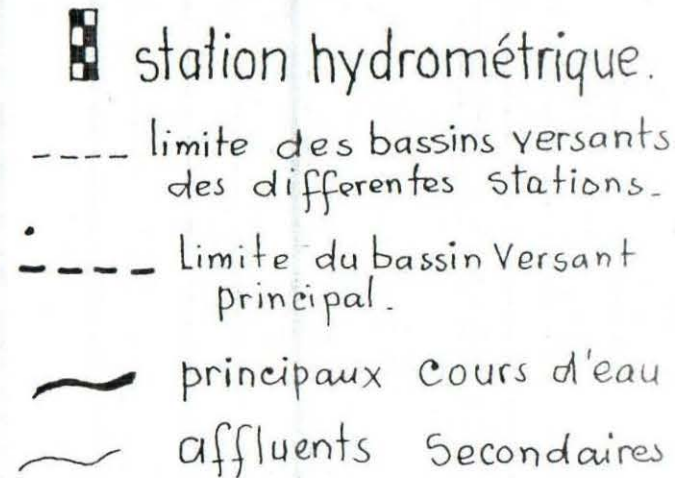 station hydrométrique.
limite des bassins versants
des differentes stations.
Limite du bassin Versant
principal.
principaux cours d'eau
affluents Secondaires